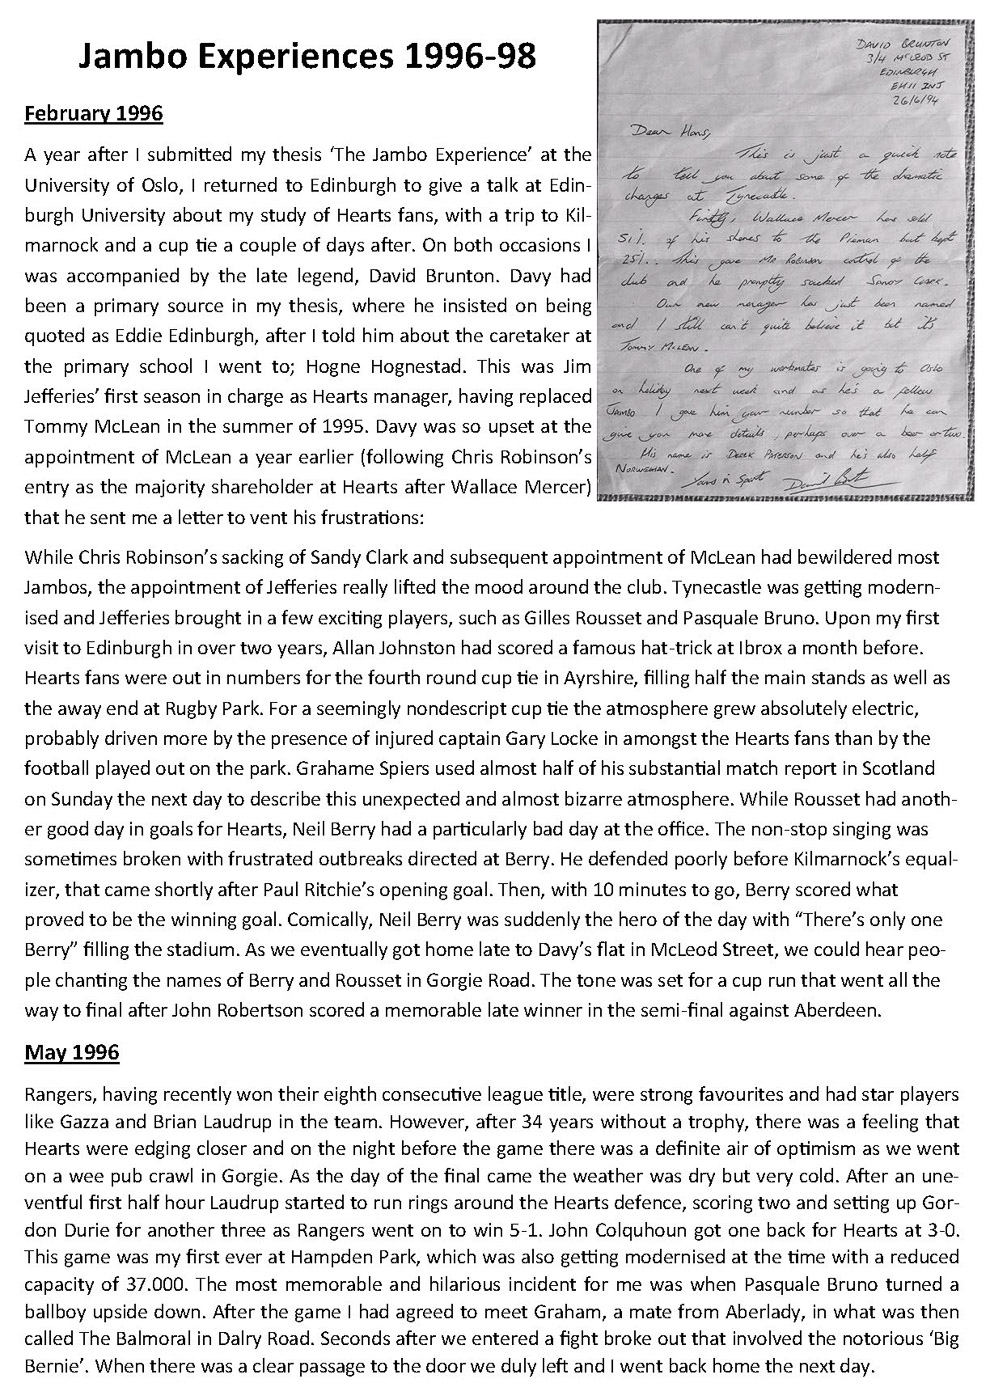 Jambo Experiences 1996-98
DAVID BRUNTON
3/4 McLEOD ST
EDINBURGH
EH11 2NJ
26/6/94
Dear Hans,
This is just a quick note
to tell you about some of the dramatic
changes at Tynecastle.
Firstly, Wallace Mercer has sold
51% of his shares to the Pieman but kept
25%. This gave Mr Robinson control of the
club and he promptly sacked Sandy Clark.
Our new manager has just been named
and I still can't quite believe it but it's
Tommy McLean.
One of my workmates is going to Oslo
on holiday next week and as he's a fellow
Jambo I gave him your number so that he can
give you more details, perhaps over a beer or two.
His name is Derek Paterson and he's also half
Norwegian.
Yours in Sport David Brunton
February 1996
A year after I submitted my thesis ‘The Jambo Experience’ at the
University of Oslo, I returned to Edinburgh to give a talk at Edin-
burgh University about my study of Hearts fans, with a trip to Kil-
marnock and a cup tie a couple of days after. On both occasions I
was accompanied by the late legend, David Brunton. Davy had
been a primary source in my thesis, where he insisted on being
quoted as Eddie Edinburgh, after I told him about the caretaker at
the primary school I went to; Hogne Hognestad. This was Jim
Jefferies’ first season in charge as Hearts manager, having replaced
Tommy McLean in the summer of 1995. Davy was so upset at the
appointment of McLean a year earlier (following Chris Robinson’s
entry as the majority shareholder at Hearts after Wallace Mercer)
that he sent me a letter to vent his frustrations:
While Chris Robinson’s sacking of Sandy Clark and subsequent appointment of McLean had bewildered most
Jambos, the appointment of Jefferies really lifted the mood around the club. Tynecastle was getting modern-
ised and Jefferies brought in a few exciting players, such as Gilles Rousset and Pasquale Bruno. Upon my first
visit to Edinburgh in over two years, Allan Johnston had scored a famous hat-trick at Ibrox a month before.
Hearts fans were out in numbers for the fourth round cup tie in Ayrshire, filling half the main stands as well as
the away end at Rugby Park. For a seemingly nondescript cup tie the atmosphere grew absolutely electric,
probably driven more by the presence of injured captain Gary Locke in amongst the Hearts fans than by the
football played out on the park. Grahame Spiers used almost half of his substantial match report in Scotland
on Sunday the next day to describe this unexpected and almost bizarre atmosphere. While Rousset had anoth-
er good day in goals for Hearts, Neil Berry had a particularly bad day at the office. The non-stop singing was
sometimes broken with frustrated outbreaks directed at Berry. He defended poorly before Kilmarnock’s equal-
izer, that came shortly after Paul Ritchie’s opening goal. Then, with 10 minutes to go, Berry scored what
proved to be the winning goal. Comically, Neil Berry was suddenly the hero of the day with “There’s only one
Berry” filling the stadium. As we eventually got home late to Davy’s flat in McLeod Street, we could hear peo-
ple chanting the names of Berry and Rousset in Gorgie Road. The tone was set for a cup run that went all the
way to final after John Robertson scored a memorable late winner in the semi-final against Aberdeen.
May 1996
Rangers, having recently won their eighth consecutive league title, were strong favourites and had star players
like Gazza and Brian Laudrup in the team. However, after 34 years without a trophy, there was a feeling that
Hearts were edging closer and on the night before the game there was a definite air of optimism as we went
on a wee pub crawl in Gorgie. As the day of the final came the weather was dry but very cold. After an une-
ventful first half hour Laudrup started to run rings around the Hearts defence, scoring two and setting up Gor-
don Durie for another three as Rangers went on to win 5-1. John Colquhoun got one back for Hearts at 3-0.
This game was my first ever at Hampden Park, which was also getting modernised at the time with a reduced
capacity of 37.000. The most memorable and hilarious incident for me was when Pasquale Bruno turned a
ballboy upside down. After the game I had agreed to meet Graham, a mate from Aberlady, in what was then
called The Balmoral in Dalry Road. Seconds after we entered a fight broke out that involved the notorious ‘Big
Bernie’. When there was a clear passage to the door we duly left and I went back home the next day.